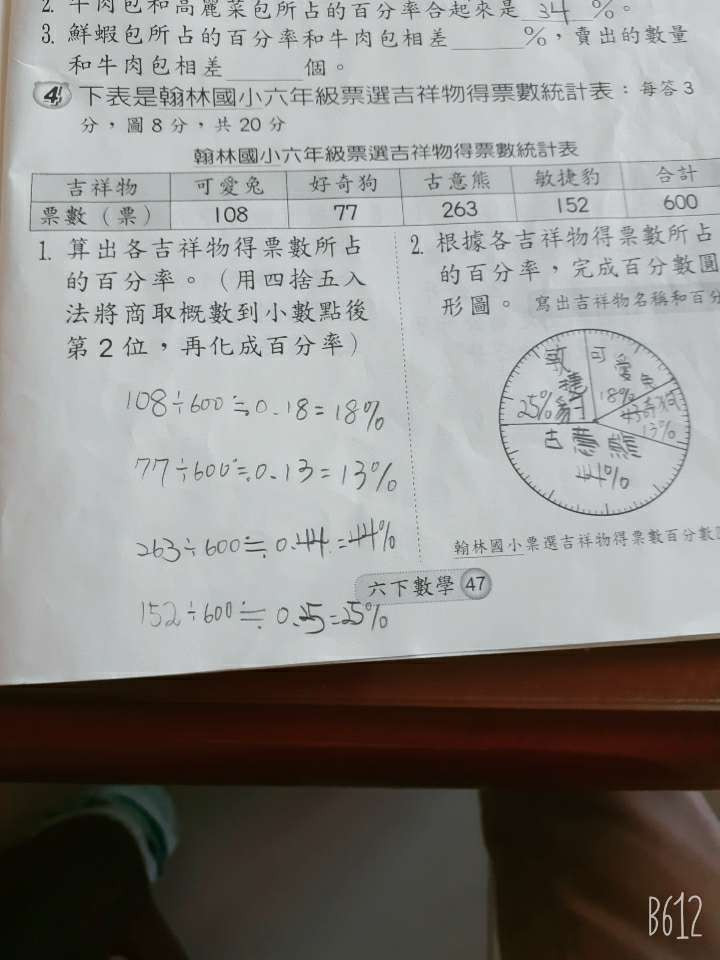 2. 牛肉包和高麗菜包所占的百分率合起來是 34 %。
3. 鮮蝦包所占的百分率和牛肉包相差______%，賣出的數量
和牛肉包相差______個。
4 下表是翰林國小六年級票選吉祥物得票數統計表：每答3
分，圖8分，共20分
翰林國小六年級票選吉祥物得票數統計表
吉祥物 可愛兔 好奇狗 古意熊 敏捷豹 合計
票數（票） 108 77 263 152 600
1. 算出各吉祥物得票數所占
的百分率。（用四捨五入
法將商取概數到小數點後
第2位，再化成百分率）
108÷600≒0.18=18%
77÷600≒0.13=13%
263÷600≒0.44=44%
152÷600≒0.25=25%
2. 根據各吉祥物得票數所占
的百分率，完成百分數圓
形圖。 寫出吉祥物名稱和百分
敏捷豹 25%
可愛兔 18%
好奇狗 13%
古意熊 44%
翰林國小票選吉祥物得票數百分數
六下數學 47
B612